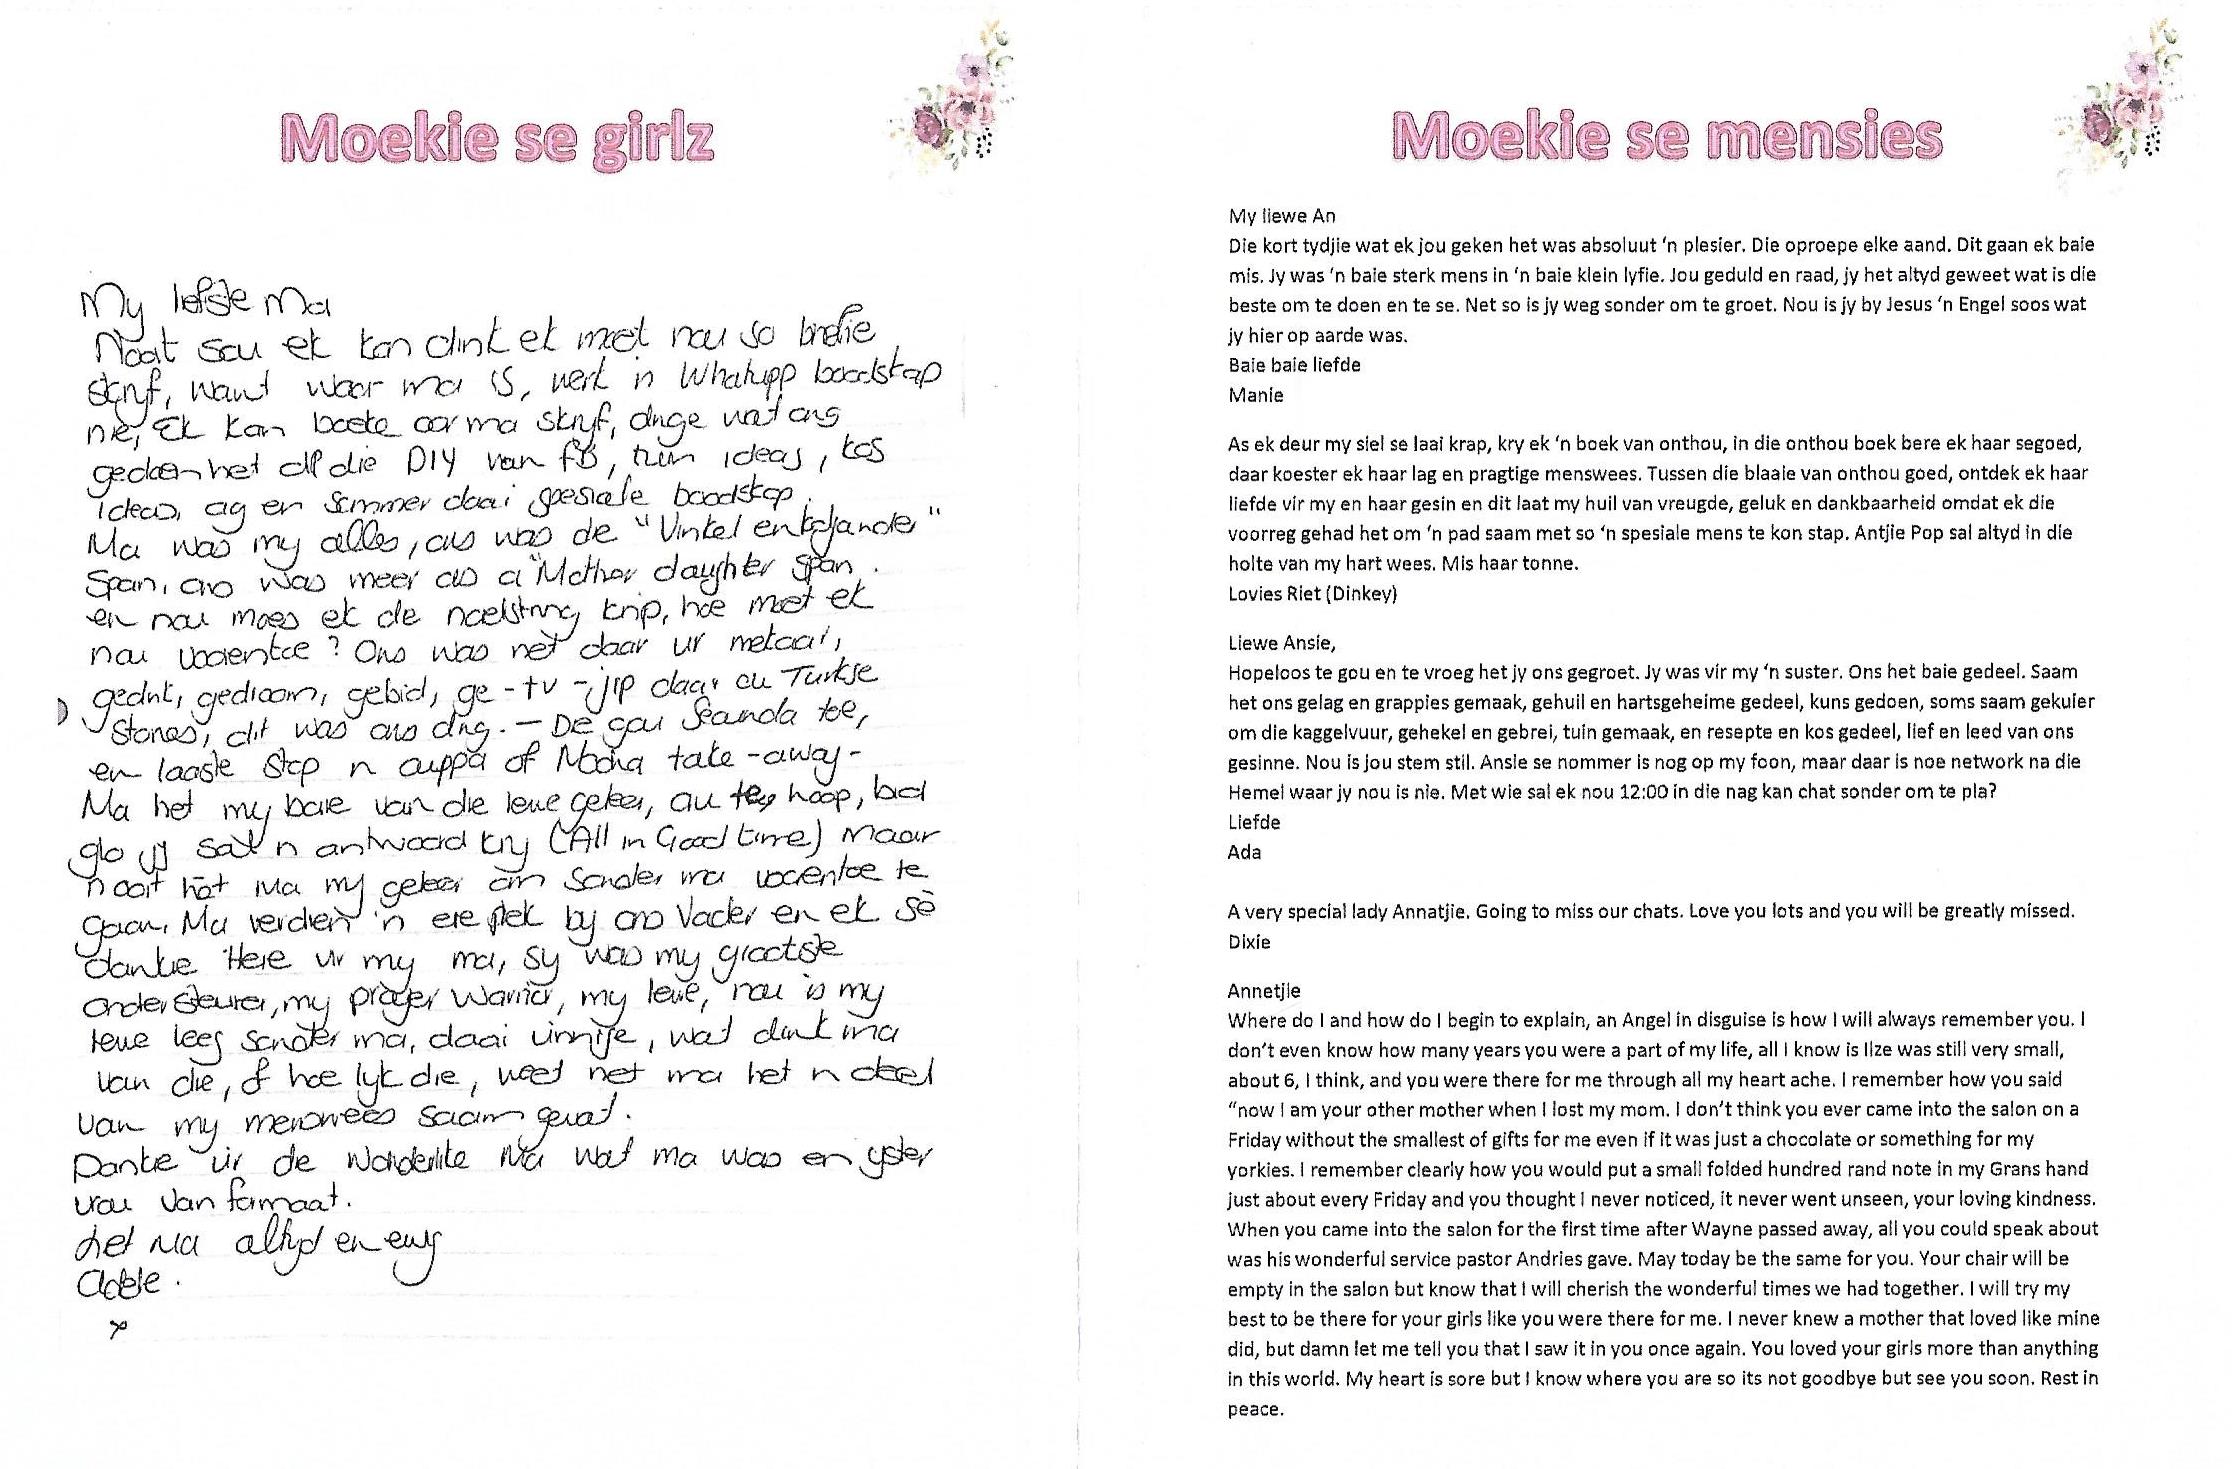 Moekie se girlz
My liefste Ma
Nooit sou ek kon dink ek moet nou so briefie
skryf, want waar ma is, werk 'n Whatupp boodskap
nie, Ek kan boeke oor ma skryf, dinge wat ons
gedoen het al die DIY van FB, tuin ideas, kos
ideas, ag en sommer daai spesiale boodskap.
Ma was my alles, ons was die "Vinkel en koljander"
Span, ons was meer as a "Mother daughter span.
en nou moes ek die naelstring knip, hoe moet ek
nou vorentoe? Ons was net daar vir mekaar,
gedink, gedroom, gebid, ge-tv-jip daai ou Turkse
Stories, dit was ons ding. - De gou Seanda toe,
en laaste stop 'n cuppa of Mocha take-away-
Ma het my baie van die lewe geleer, ou hoop, bid
glo jy sal 'n antwoord kry (All in Good time) maar
nooit het Ma my geleer om sonder ma vorentoe te
gaan. Ma verdien 'n ere plek by ons Vader en ek sê
dankie Here vir my ma, sy was my grootste
ondersteuner, my prayer warrior, my lewe, nou is my
lewe leeg sonder ma, daai vinnige, wat dink ma
van die, of hoe lyk die, weet net ma het 'n deel
van my menswees saam gevat.
Dankie vir die wonderlike Ma wat ma was en yster
vrou van formaat.
Lief Ma altyd en ewig
x
Moekie se mensies
My liewe An
Die kort tydjie wat ek jou geken het was absoluut 'n plesier. Die oproepe elke aand. Dit gaan ek baie
mis. Jy was 'n baie sterk mens in 'n baie klein lyfie. Jou geduld en raad, jy het altyd geweet wat is die
beste om te doen en te se. Net so is jy weg sonder om te groet. Nou is jy by Jesus 'n Engel soos wat
jy hier op aarde was.
Baie baie liefde
Manie
As ek deur my siel se laai krap, kry ek 'n boek van onthou, in die onthou boek bere ek haar segoed,
daar koester ek haar lag en pragtige menswees. Tussen die blaaie van onthou goed, ontdek ek haar
liefde vir my en haar gesin en dit laat my huil van vreugde, geluk en dankbaarheid omdat ek die
voorreg gehad het om 'n pad saam met so 'n spesiale mens te kon stap. Antjie Pop sal altyd in die
holte van my hart wees. Mis haar tonne.
Lovies Riet (Dinkey)
Liewe Ansie,
Hopeloos te gou en te vroeg het jy ons gegroet. Jy was vir my 'n suster. Ons het baie gedeel. Saam
het ons gelag en grappies gemaak, gehuil en hartsgeheime gedeel, kuns gedoen, soms saam gekuier
om die kaggelvuur, gehekel en gebrei, tuin gemaak, en resepte en kos gedeel, lief en leed van ons
gesinne. Nou is jou stem stil. Ansie se nommer is nog op my foon, maar daar is noe network na die
Hemel waar jy nou is nie. Met wie sal ek nou 12:00 in die nag kan chat sonder om te pla?
Liefde
Ada
A very special lady Annatjie. Going to miss our chats. Love you lots and you will be greatly missed.
Dixie
Annetjie
Where do I and how do I begin to explain, an Angel in disguise is how I will always remember you. I
don't even know how many years you were a part of my life, all I know is Ilze was still very small,
about 6, I think, and you were there for me through all my heart ache. I remember how you said
"now I am your other mother when I lost my mom. I don't think you ever came into the salon on a
Friday without the smallest of gifts for me even if it was just a chocolate or something for my
yorkies. I remember clearly how you would put a small folded hundred rand note in my Grans hand
just about every Friday and you thought I never noticed, it never went unseen, your loving kindness.
When you came into the salon for the first time after Wayne passed away, all you could speak about
was his wonderful service pastor Andries gave. May today be the same for you. Your chair will be
empty in the salon but know that I will cherish the wonderful times we had together. I will try my
best to be there for your girls like you were there for me. I never knew a mother that loved like mine
did, but damn let me tell you that I saw it in you once again. You loved your girls more than anything
in this world. My heart is sore but I know where you are so its not goodbye but see you soon. Rest in
peace.